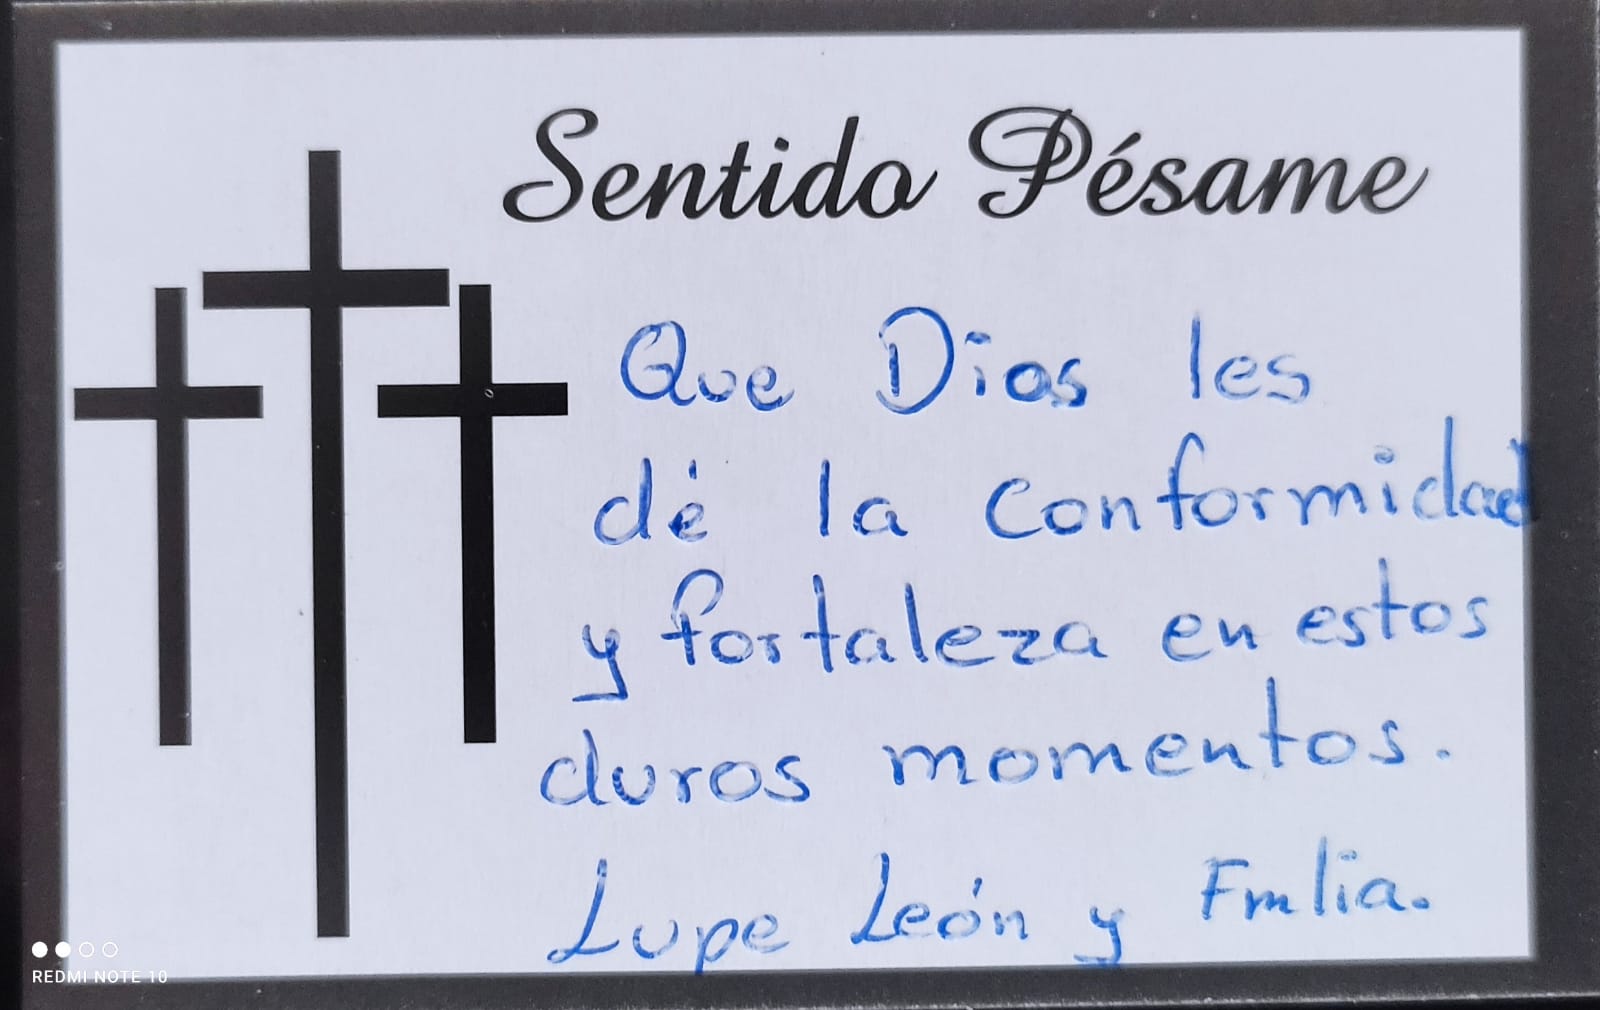 Sentido Pésame
Que Dios les
dé la conformidad
y fortaleza en estos
duros momentos.
Lupe León y Fmlia.
REDMI NOTE 10